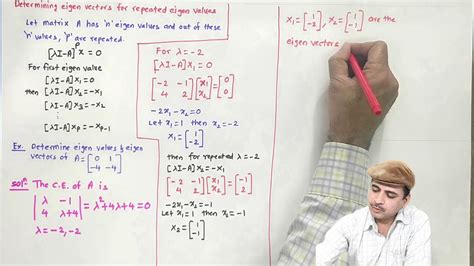 Determining eigen vectors for repeated eigen values
Let matrix A has 'n' eigen values and out of these
'n' values, 'p' are repeated.
[λI-A]ᵖx = 0
For first eigen value
[λI-A]x₁ = 0
then [λI-A]x₂ = -x₁
[λI-A]x₃ = -x₂
⋮
[λI-A]xₚ = -xₚ₋₁
Ex: Determine eigen values & eigen
vectors of A = [0 1; -4 -4]
Solⁿ: The C.E. of A is
|λ -1; 4 λ+4| = λ²+4λ+4 = 0
λ = -2, -2
For λ = -2
[λI-A]x₁ = 0
[-2 -1; 4 2] [x₁; x₂] = [0; 0]
-2x₁ - x₂ = 0
Let x₁ = 1 then x₂ = -2
x₁ = [1; -2]
then for repeated λ = -2
[λI-A]x₂ = -x₁
[-2 -1; 4 2] [x₁; x₂] = [-1; 2]
-2x₁ - x₂ = -1
Let x₁ = 1 then x₂ = -1
x₂ = [1; -1]
x₁ = [1; -2], x₂ = [1; -1] are the
eigen vectors